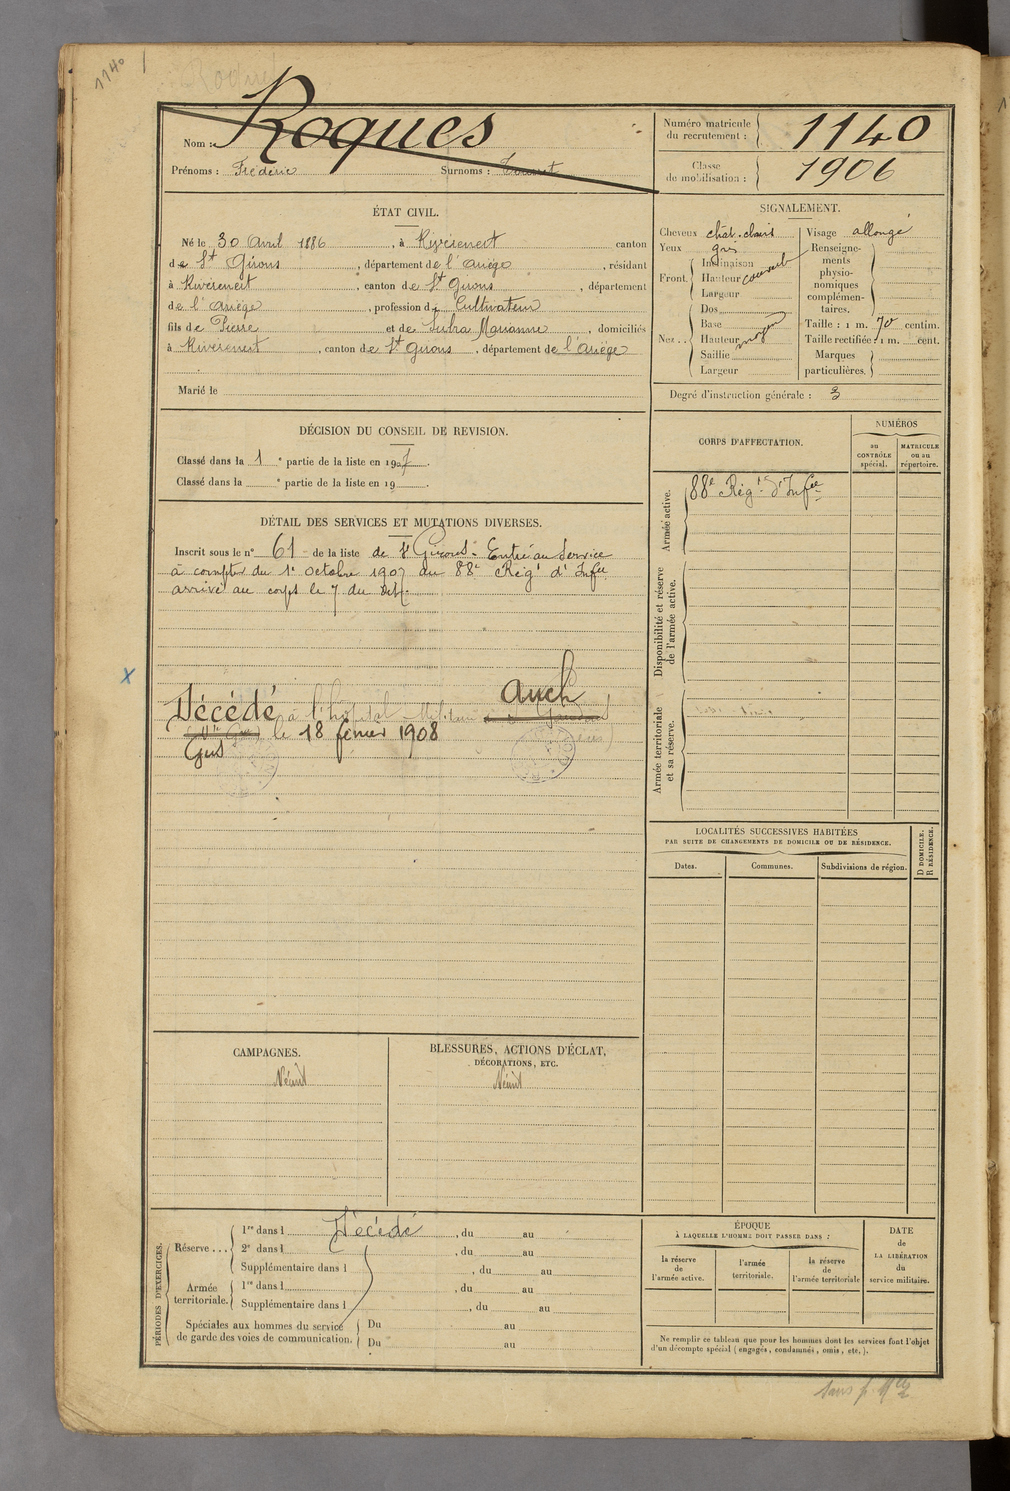 1140
Nom : Roques
Prénoms : Frédéric Surnoms :
Numéro matricule
du recrutement : 1140
Classe
de mobilisation : 1906
ÉTAT CIVIL.
Né le 30 Avril 1886, à Rivèrenert canton
de St Girons, département de l'Ariège, résidant
à Rivèrenert, canton de St Girons, département
de l'Ariège, profession de Cultivateur
fils de Pierre et de Subra Marianne, domiciliés
à Rivèrenert, canton de St Girons, département de l'Ariège
Marié le
SIGNALEMENT.
Cheveux chât. clairs
Yeux gris
Front. Inclinaison
Hauteur couvert
Largeur
Nez .. Dos
Base
Hauteur moyen
Saillie
Largeur
Visage allongé
Renseigne-
ments
physio-
nomiques
complémen-
taires.
Taille : 1 m. 70 centim.
Taille rectifiée : 1 m. cent.
Marques
particulières.
Degré d'instruction générale : 3
DÉCISION DU CONSEIL DE REVISION.
Classé dans la 1e partie de la liste en 1907.
Classé dans la e partie de la liste en 19 .
DÉTAIL DES SERVICES ET MUTATIONS DIVERSES.
Inscrit sous le n° 61 de la liste de St Girons. Entré au service
à compter du 1er octobre 1907 au 88e Régt d'Infie
arrivé au corps le 7 du dit.
Auch
Décédé à l'hôpital Militaire
Gers le 18 février 1908
CORPS D'AFFECTATION.
NUMÉROS
au
CONTRÔLE
spécial.
MATRICULE
ou au
répertoire.
Armée active.
88e Régt d'Infie
Disponibilité et réserve
de l'armée active.
Armée territoriale
et sa réserve.
LOCALITÉS SUCCESSIVES HABITÉES
PAR SUITE DE CHANGEMENTS DE DOMICILE OU DE RÉSIDENCE.
Dates. Communes. Subdivisions de région.
D DOMICILE.
R RÉSIDENCE.
CAMPAGNES.
Néant
BLESSURES, ACTIONS D'ÉCLAT,
DÉCORATIONS, ETC.
Néant
PÉRIODES D'EXERCICES.
Réserve ...
1re dans l Décédé, du au
2e dans l , du au
Supplémentaire dans l , du au
Armée
territoriale.
1re dans l , du au
Supplémentaire dans l , du au
Spéciales aux hommes du service
de garde des voies de communication.
Du au
Du au
ÉPOQUE
À LAQUELLE L'HOMME DOIT PASSER DANS :
la réserve
de
l'armée active.
l'armée
territoriale.
la réserve
de
l'armée territoriale
DATE
de
LA LIBÉRATION
du
service militaire.
Ne remplir ce tableau que pour les hommes dont les services font l'objet
d'un décompte spécial (engagés, condamnés, omis, etc.).